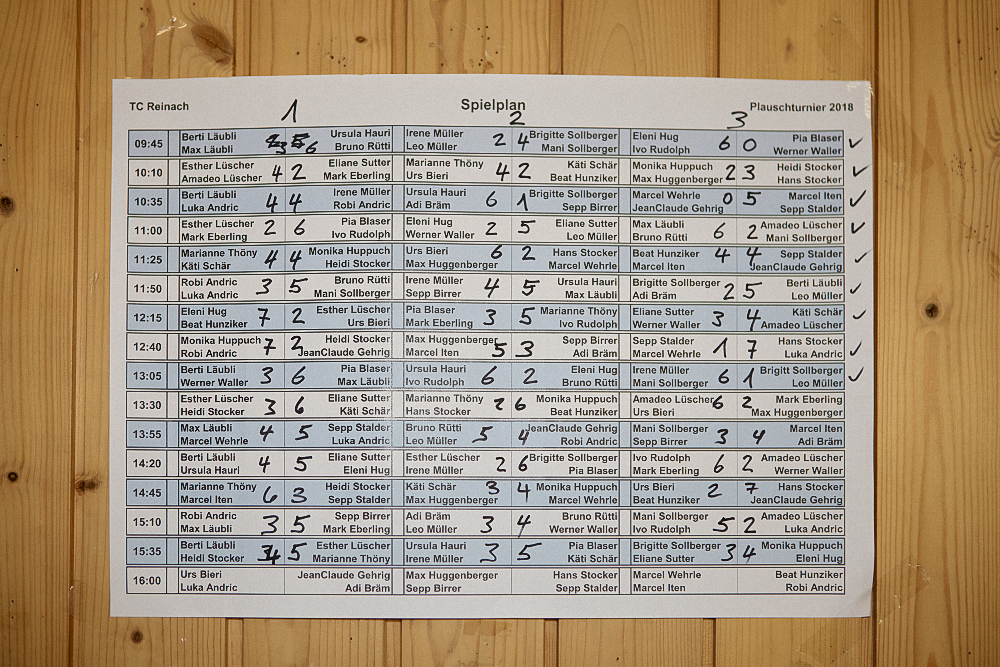 TC Reinach Spielplan Plauschturnier 2018
1 2 3
09:45 Berti Läubli Ursula Hauri Irene Müller 2 4 Brigitte Sollberger Eleni Hug 6 0 Pia Blaser ✓
Max Läubli 6 Bruno Rütti Leo Müller Mani Sollberger Ivo Rudolph Werner Waller
10:10 Esther Lüscher 4 2 Eliane Sutter Marianne Thöny 4 2 Käti Schär Monika Huppuch 2 3 Heidi Stocker ✓
Amadeo Lüscher Mark Eberling Urs Bieri Beat Hunziker Max Huggenberger Hans Stocker
10:35 Berti Läubli 4 4 Irene Müller Ursula Hauri 6 1 Brigitte Sollberger Marcel Wehrle 0 5 Marcel Iten ✓
Luka Andric Robi Andric Adi Bräm Sepp Birrer JeanClaude Gehrig Sepp Stalder
11:00 Esther Lüscher 2 6 Pia Blaser Eleni Hug 2 5 Eliane Sutter Max Läubli 6 2 Amadeo Lüscher ✓
Mark Eberling Ivo Rudolph Werner Waller Leo Müller Bruno Rütti Mani Sollberger
11:25 Marianne Thöny 4 4 Monika Huppuch Urs Bieri 6 2 Hans Stocker Beat Hunziker 4 4 Sepp Stalder ✓
Käti Schär Heidi Stocker Max Huggenberger Marcel Wehrle Marcel Iten JeanClaude Gehrig
11:50 Robi Andric 3 5 Bruno Rütti Irene Müller 4 5 Ursula Hauri Brigitte Sollberger 2 5 Berti Läubli ✓
Luka Andric Mani Sollberger Sepp Birrer Max Läubli Adi Bräm Leo Müller
12:15 Eleni Hug 7 2 Esther Lüscher Pia Blaser 3 5 Marianne Thöny Eliane Sutter 3 4 Käti Schär ✓
Beat Hunziker Urs Bieri Mark Eberling Ivo Rudolph Werner Waller Amadeo Lüscher
12:40 Monika Huppuch 7 2 Heidi Stocker Max Huggenberger 5 3 Sepp Birrer Sepp Stalder 1 7 Hans Stocker ✓
Robi Andric JeanClaude Gehrig Marcel Iten Adi Bräm Marcel Wehrle Luka Andric
13:05 Berti Läubli 3 6 Pia Blaser Ursula Hauri 6 2 Eleni Hug Irene Müller 6 1 Brigitt Sollberger ✓
Werner Waller Max Läubli Ivo Rudolph Bruno Rütti Mani Sollberger Leo Müller
13:30 Esther Lüscher 3 6 Eliane Sutter Marianne Thöny 2 6 Monika Huppuch Amadeo Lüscher 6 2 Mark Eberling
Heidi Stocker Käti Schär Hans Stocker Beat Hunziker Urs Bieri Max Huggenberger
13:55 Max Läubli 4 5 Sepp Stalder Bruno Rütti 5 4 JeanClaude Gehrig Mani Sollberger 3 4 Marcel Iten
Marcel Wehrle Luka Andric Leo Müller Robi Andric Sepp Birrer Adi Bräm
14:20 Berti Läubli 4 5 Eliane Sutter Esther Lüscher 2 6 Brigitte Sollberger Ivo Rudolph 6 2 Amadeo Lüscher
Ursula Hauri Eleni Hug Irene Müller Pia Blaser Mark Eberling Werner Waller
14:45 Marianne Thöny 6 3 Heidi Stocker Käti Schär 3 4 Monika Huppuch Urs Bieri 2 7 Hans Stocker
Marcel Iten Sepp Stalder Max Huggenberger Marcel Wehrle Beat Hunziker JeanClaude Gehrig
15:10 Robi Andric 3 5 Sepp Birrer Adi Bräm 3 4 Bruno Rütti Mani Sollberger 5 2 Amadeo Lüscher
Max Läubli Mark Eberling Leo Müller Werner Waller Ivo Rudolph Luka Andric
15:35 Berti Läubli 4 5 Esther Lüscher Ursula Hauri 3 5 Pia Blaser Brigitte Sollberger 3 4 Monika Huppuch
Heidi Stocker Marianne Thöny Irene Müller Käti Schär Eliane Sutter Eleni Hug
16:00 Urs Bieri JeanClaude Gehrig Max Huggenberger Hans Stocker Marcel Wehrle Beat Hunziker
Luka Andric Adi Bräm Sepp Birrer Sepp Stalder Marcel Iten Robi Andric